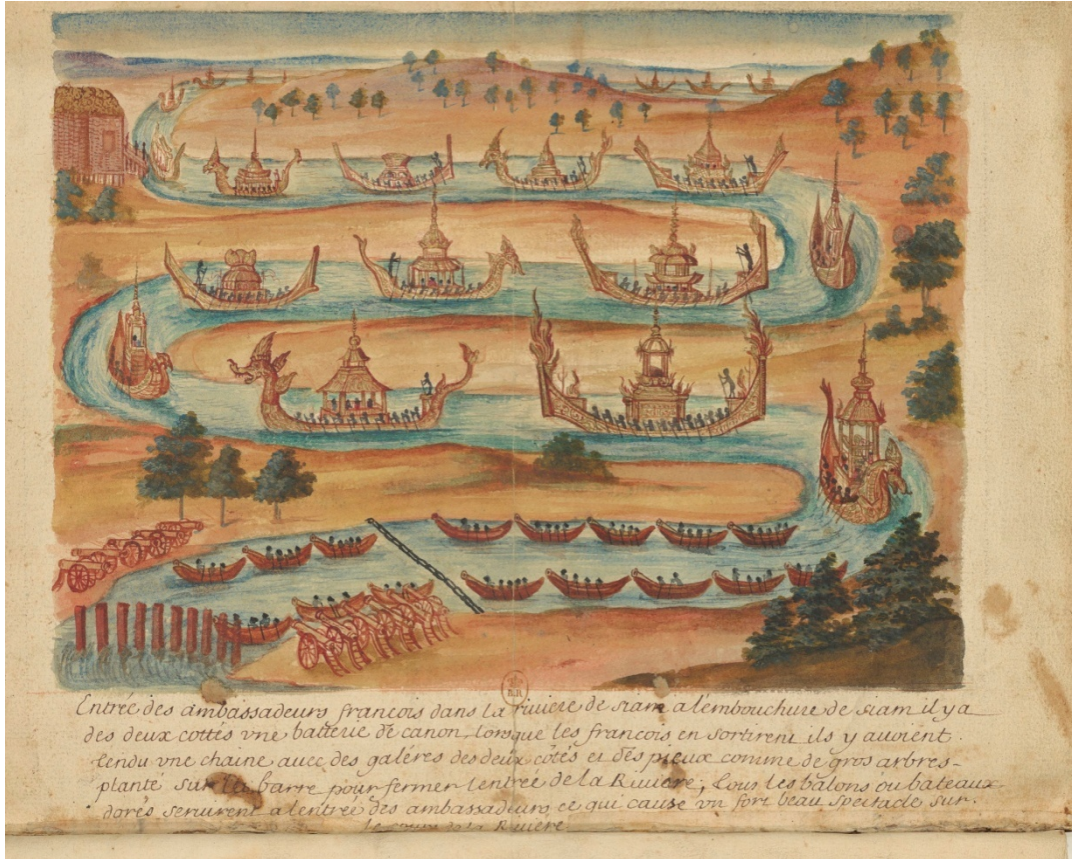 Entrée des ambassadeurs francois dans la riuiere de siam a lembouchure de siam il y a
des deux cottés vne batterie de canon, lorsque les francois en sortirent ils y auoient
tendu vne chaine auec des galéres des deux côtés et des pieux comme de gros arbres-
planté sur la barre pour fermer lentrée de la Riuiere; tous les balons ou bateaux
dorés seruirent a lentrée des ambassadeurs ce qui cause vn fort beau spectacle sur
de la Riuiere